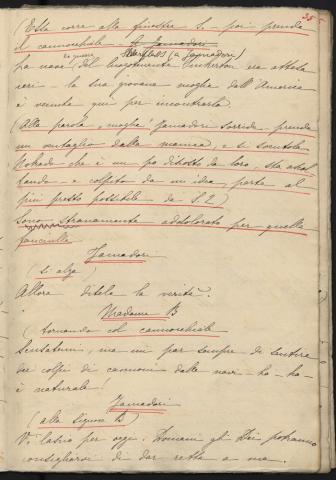 35
(Essa corre alla finestra S. poi prende
il cannocchiale - Il Jamadori
la guerra Sharpless (a Jamadori)
La nave del luogotenente Pinkerton era attesa
ieri - la sua giovane moglie dell'America
è venuta qui per incontrarla.
(Alla parola, moglie Jamadori sorride - prende
un ventaglio dalla manica, e si sventola
Nokado che è un po' discosto da loro, sta
e colpito da un idea, parte al
più presto possibile da S. 2)
Sono stranamente addolorato per quella
fanciulla
Jamadori
(si alza)
Allora ditele la verità.
Madame B
(tornando col cannocchiale
Scusatemi, ma mi par sempre di sentire
dei colpi di cannoni dalle navi - ha - ha -
è naturale!
Jamadori
(alla Signora B)
Vi lascio per oggi. Domani gli Dei potranno
consigliarvi di dar retta a me.